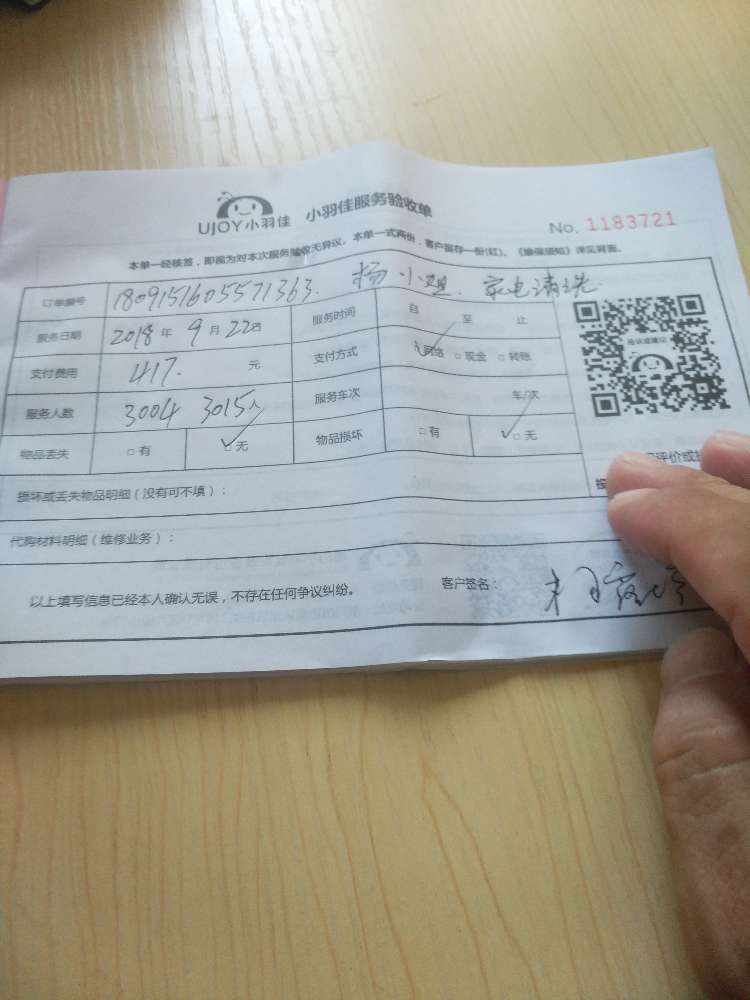 UJOY小羽佳 小羽佳服务验收单
No. 1183721
本单一经核签，即视为对本次服务验收无异议。本单一式两份，客户留存一份(红)。《维保须知》详见背面。
订单编号 1809151605571363. 杨小姐. 家电清洗.
服务日期 2018年 9月 22日 服务时间 自 至 止
支付费用 417. 元 支付方式 ☑网络 □现金 □转账
服务人数 3004 3015人 服务车次 车/次
物品丢失 □有 ☑无 物品损坏 □有 ☑无
投诉或建议
评价或
损坏或丢失物品明细（没有可不填）：
代购材料明细（维修业务）：
以上填写信息已经本人确认无误，不存在任何争议纠纷。 客户签名：